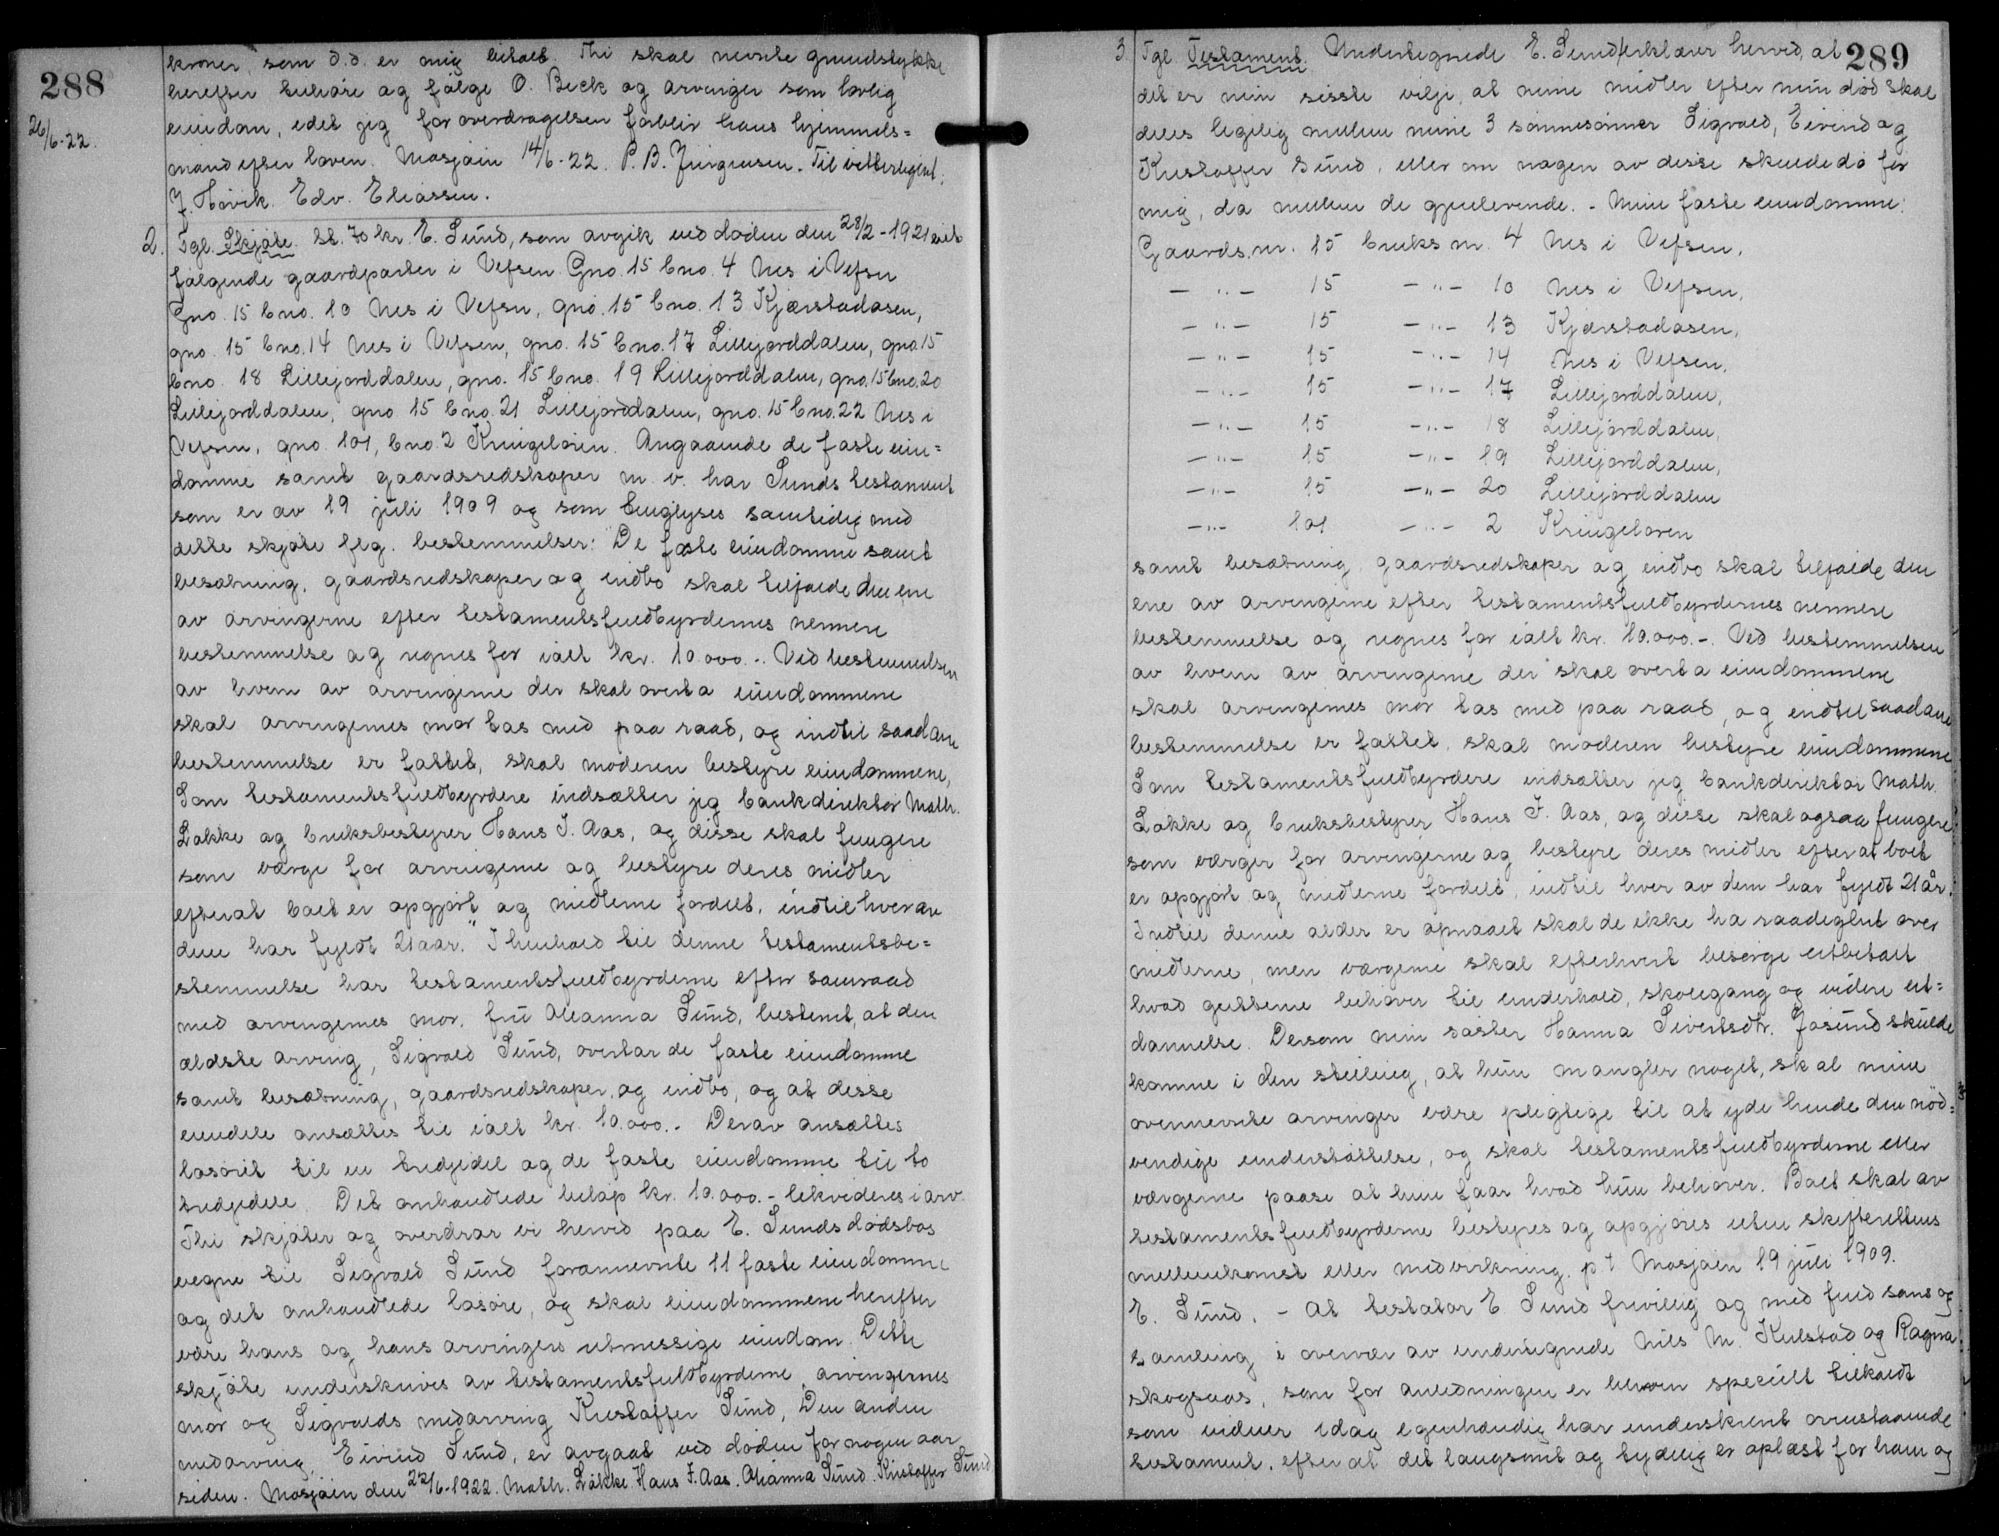 288
26/6-22.
kroner, som d.d. er mig betalt. Thi skal nevnte grundstykke
herefter tilhøre og følge O. Beck og arvinger som lovlig
eiendom, idet jeg for overdragelsen forblir hans hjemmels=
mand efter loven. Mosjøen 14/6-22. P. B. Jürgensen. Til vitterlighet:
J. Høvik. Edv. Eliassen.
2. Tgl. Skjøte. st. 70 kr. E. Sund, som avgik ved døden den 28/2-1921 eiet
følgende gaardparter i Vefsen Gno. 15 bno. 4 Nes i Vefsn
Gno. 15 bno. 10 Nes i Vefsn, gno. 15 bno. 13 Kjærstadåsen,
gno. 15 bno. 14 Nes i Vefsen, gno. 15 bno. 17 Lillejorddalen, gno. 15
bno. 18 Lillejorddalen, gno. 15 bno. 19 Lillejorddalen, gno. 15 bno. 20
Lillejorddalen, gno 15 bno. 21 Lillejorddalen, gno. 15 bno. 22 Nes i
Vefsen, gno. 101, bno. 2 Kringeløren. Angaaende de faste eien=
domme samt gaardsredskaper m. v. har Sunds testament
som er av 19 juli 1909 og som tinglyses samtidig med
dette skjøte flg. bestemmelser: "De faste eiendomme samt
besætning, gaardsredskaper og indbo skal tilfalde den ene
av arvingerne efter testamentsfuldbyrdernes nermere
bestemmelse og regnes for ialt kr. 10.000.-. Ved bestemmelsen
av hvem av arvingerne der skal overta eiendommene
skal arvingernes mor tas med paa raad, og indtil saadan
bestemmelse er fattet, skal moderen bestyre eiendommene,
Som testamentsfuldbyrdere indsætter jeg bankdirektør Math.
Løkke og bruksbestyrer Hans J. Aas, og disse skal fungere
som værge for arvingerne og bestyre deres midler
efterat boet er opgjort og midlerne fordelt, indtil hver av
dem har fyldt 21 aar." I henhold til denne testamentsbe=
stemmelse har testamentsfuldbyrderne efter samraad
med arvingernes mor, fru Alianna Sund, bestemt, at den
ældste arving, Sigvald Sund, overtar de faste eiendomme
samt besætning, gaardsredskaper, og indbo, og at disse
eiendele ansættes til ialt kr. 10.000.- Derav ansættes
løsøret til en tredjedel og de faste eiendomme til to
tredjedele. Det omhandlede beløp kr. 10.000.- likvideres i arv.
Thi skjøter og overdrar vi herved paa E. Sunds dødsbos
vegne til Sigvald Sund forannevnte 11 faste eiendomme
og det omhandlede løsøre, og skal eiendommene herefter
være hans og hans arvingers retmessige eiendom. Dette
skjøte underskrives av testamentsfuldbyrderne, arvingernes
mor og Sigvalds medarving Kristoffer Sund, Den anden
medarving, Eivind Sund, er avgaat ved døden for nogen aar
siden. Mosjøen den 22/6-1922. Math. Løkke. Hans J. Aas. Alianna Sund. Kristoffer Sund
289
3. Tgl. Testament. Undertegnede E. Sund erklærer herved, at
det er min sisste vilje, at mine midler efter min død skal
deles ligelig mellem mine 3 sønnesønner Sigvald, Eivind og
Kristoffer Sund, eller om nogen av disse skulde dø før
mig, da mellem de gjenlevende. - Mine faste eiendomme:
Gaards.nr. 15 bruks nr. 4 Nes i Vefsen,
— " — 15 — " — 10 Nes i Vefsen,
— " — 15 — " — 13 Kjærstadåsen,
— " — 15 — " — 14 Nes i Vefsen,
— " — 15 — " — 17 Lillejorddalen,
— " — 15 — " — 18 Lillejorddalen,
— " — 15 — " — 19 Lillejorddalen,
— " — 15 — " — 20 Lillejorddalen
— " — 101 — " — 2 Kringeløren
samt besætning, gaardsredskaper og indbo skal tilfalde den
ene av arvingerne efter testamentsfuldbyrdernes nermere
bestemmelse og regnes for ialt kr. 10.000.-. Ved bestemmelsen
av hvem av arvingerne der skal overta eiendommene
skal arvingernes mor tas med paa raad, og indtil saadan
bestemmelse er fattet, skal moderen bestyre eiendommene
Som testamentsfuldbyrdere indsætter jeg bankdirektør Math.
Løkke og bruksbestyrer Hans J. Aas, og disse skal ogsaa fungere
som værger for arvingerne og bestyre deres midler efter at boet
er opgjort og midlerne fordelt, indtil hver av dem har fyldt 21 år.
Indtil denne alder er opnaaet skal de ikke ha raadighet over
midlerne, men værgerne skal efterhvert besørge utbetalt
hvad guttene behøver til underhold, skolegang og videre ut=
dannelse. Dersom min søster Hanna Sivertsdtr. Jøsund skulde
komme i den stilling, at hun mangler noget, skal mine
ovennevnte arvinger være pligtige til at yde hende den nød=
vendige understøttelse, og skal testamentsfuldbyrderne eller
værgerne paase at hun faar hvad hun behøver. Boet skal av
testamentsfuldbyrderne bestyres og opgjøres uten skifterettens
mellemkomst eller medvirkning. p t Mosjøen 19 juli 1909.
E. Sund. - At testator E Sund frivillig og med fuld sans og
samling i overvær av undertegnede Nils M. Kulstad og Ragna
Skogsaas, som for anledningen er hertil specielt tilkaldt
som vidner idag egenhændig har underskrevet ovenstaaende
testament, efter at det langsomt og tydelig er oplæst for ham og